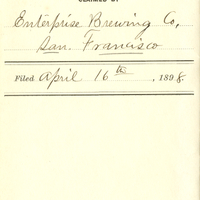 CLAIMED BY
Enterprise Brewing Co,
San. Francisco
Filed April 16th, 1898.